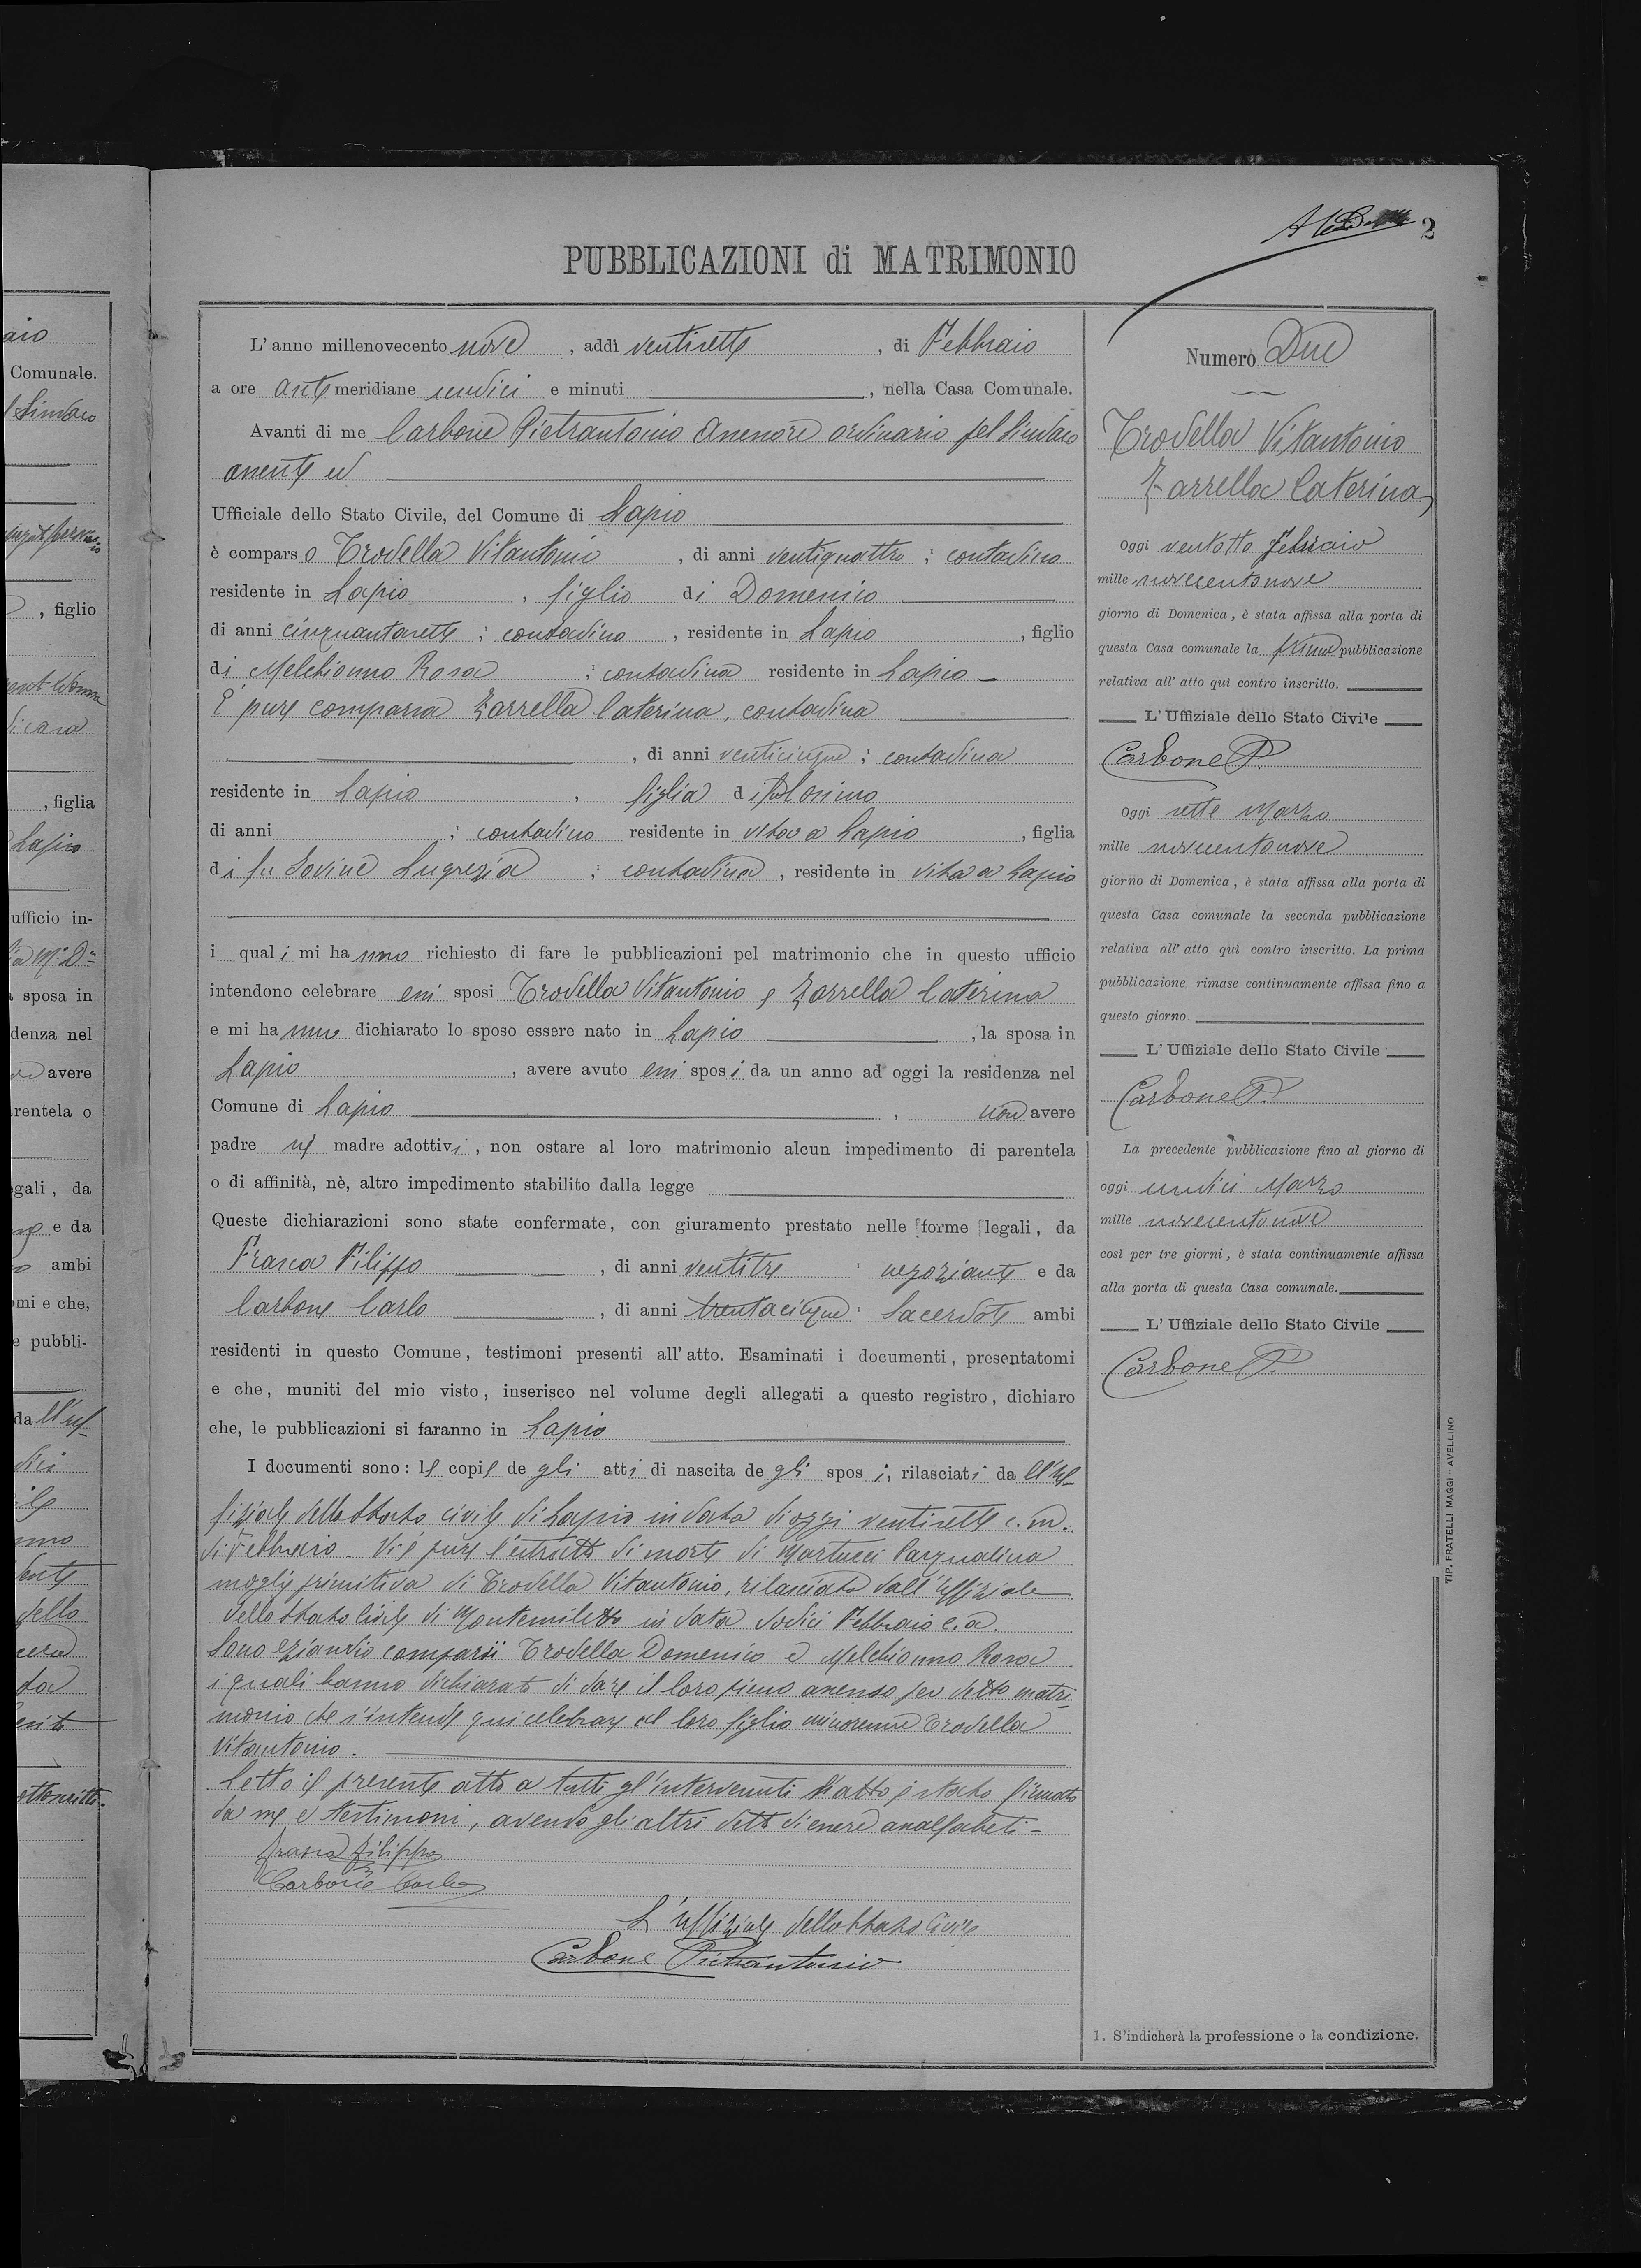 2
PUBBLICAZIONI di MATRIMONIO
L'anno millenovecento nove, addì ventisette, di Febbraio
a ore antemeridiane undici e minuti, nella Casa Comunale.
Avanti di me Carbone Pietrantonio Assessore ordinario pel Sindaco
assente ed
Ufficiale dello Stato Civile, del Comune di Lapio
è comparso Trodella Vitantonio, di anni ventiquattro; contadino
residente in Lapio, figlio di Domenico
di anni cinquantasette; contadino, residente in Lapio, figlio
di Melchionno Rosa; contadina residente in Lapio
È pure comparsa Zarrella Caterina, contadina
, di anni venticinque; contadina
residente in Lapio, figlia di fu
di anni ; contadino residente in vita a Lapio, figlia
di fu Iovine Lugrezia; contadina, residente in vita a Lapio
i quali mi hanno richiesto di fare le pubblicazioni pel matrimonio che in questo ufficio
intendono celebrare essi sposi Trodella Vitantonio e Zarrella Caterina
e mi hanno dichiarato lo sposo essere nato in Lapio, la sposa in
Lapio, avere avuto essi sposi da un anno ad oggi la residenza nel
Comune di Lapio, non avere
padre nè madre adottivi, non ostare al loro matrimonio alcun impedimento di parentela
o di affinità, nè, altro impedimento stabilito dalla legge
Queste dichiarazioni sono state confermate, con giuramento prestato nelle forme legali, da
Frasca Filippo, di anni ventitre; negoziante e da
Carbone Carlo, di anni trentacinque: Sacerdote ambi
residenti in questo Comune, testimoni presenti all'atto. Esaminati i documenti, presentatomi
e che, muniti del mio visto, inserisco nel volume degli allegati a questo registro, dichiaro
che, le pubblicazioni si faranno in Lapio
I documenti sono: le copie de gli atti di nascita de gli sposi, rilasciati dall'Uf-
fiziale dello Stato civile di Lapio in data di oggi ventisette c.m.
di Febbraio. Vi è pure l'estratto di morte di Martucci Pasqualina
moglie primitiva di Trodella Vitantonio, rilasciato dall'Uffiziale
dello Stato Civile di Montemiletto in data dodici Febbraio c.a.
Sono eziandio comparsi Trodella Domenico e Melchionno Rosa
i quali hanno dichiarato di dare il loro pieno assenso per detto matri-
monio che s'intende qui celebrare al loro figlio minorenne Trodella
Vitantonio.
Letto il presente atto a tutti gl'intervenuti l'atto è stato firmato
da me e testimoni, avendo gli altri detto di essere analfabeti-
Frasca Filippo
Carbone Carlo
L'uffiziale dello Stato Civile
Carbone Pietrantonio
Numero Due
Trodella Vitantonio
Zarrella Caterina
Oggi ventotto Febbraio
mille novecentonove
giorno di Domenica, è stata affissa alla porta di
questa Casa comunale la prima pubblicazione
relativa all'atto quì contro inscritto.
L'Uffiziale dello Stato Civile
Carbone P.
Oggi sette Marzo
mille novecentonove
giorno di Domenica, è stata affissa alla porta di
questa Casa comunale la seconda pubblicazione
relativa all'atto quì contro inscritto. La prima
pubblicazione rimase continuamente affissa fino a
questo giorno.
L'Uffiziale dello Stato Civile
Carbone P.
La precedente pubblicazione fino al giorno di
oggi undici Marzo
mille novecentonove
così per tre giorni, è stata continuamente affissa
alla porta di questa Casa comunale.
L'Uffiziale dello Stato Civile
Carbone P.
1. S'indicherà la professione o la condizione.
TIP. FRATELLI MAGGI - AVELLINO
aio
Comunale.
Sindaco
, figlio
, figlia
Lapio
ufficio in-
sposa in
denza nel
avere
rentela o
gali, da
e da
ambi
omi e che,
e pubbli-
dall'uf-